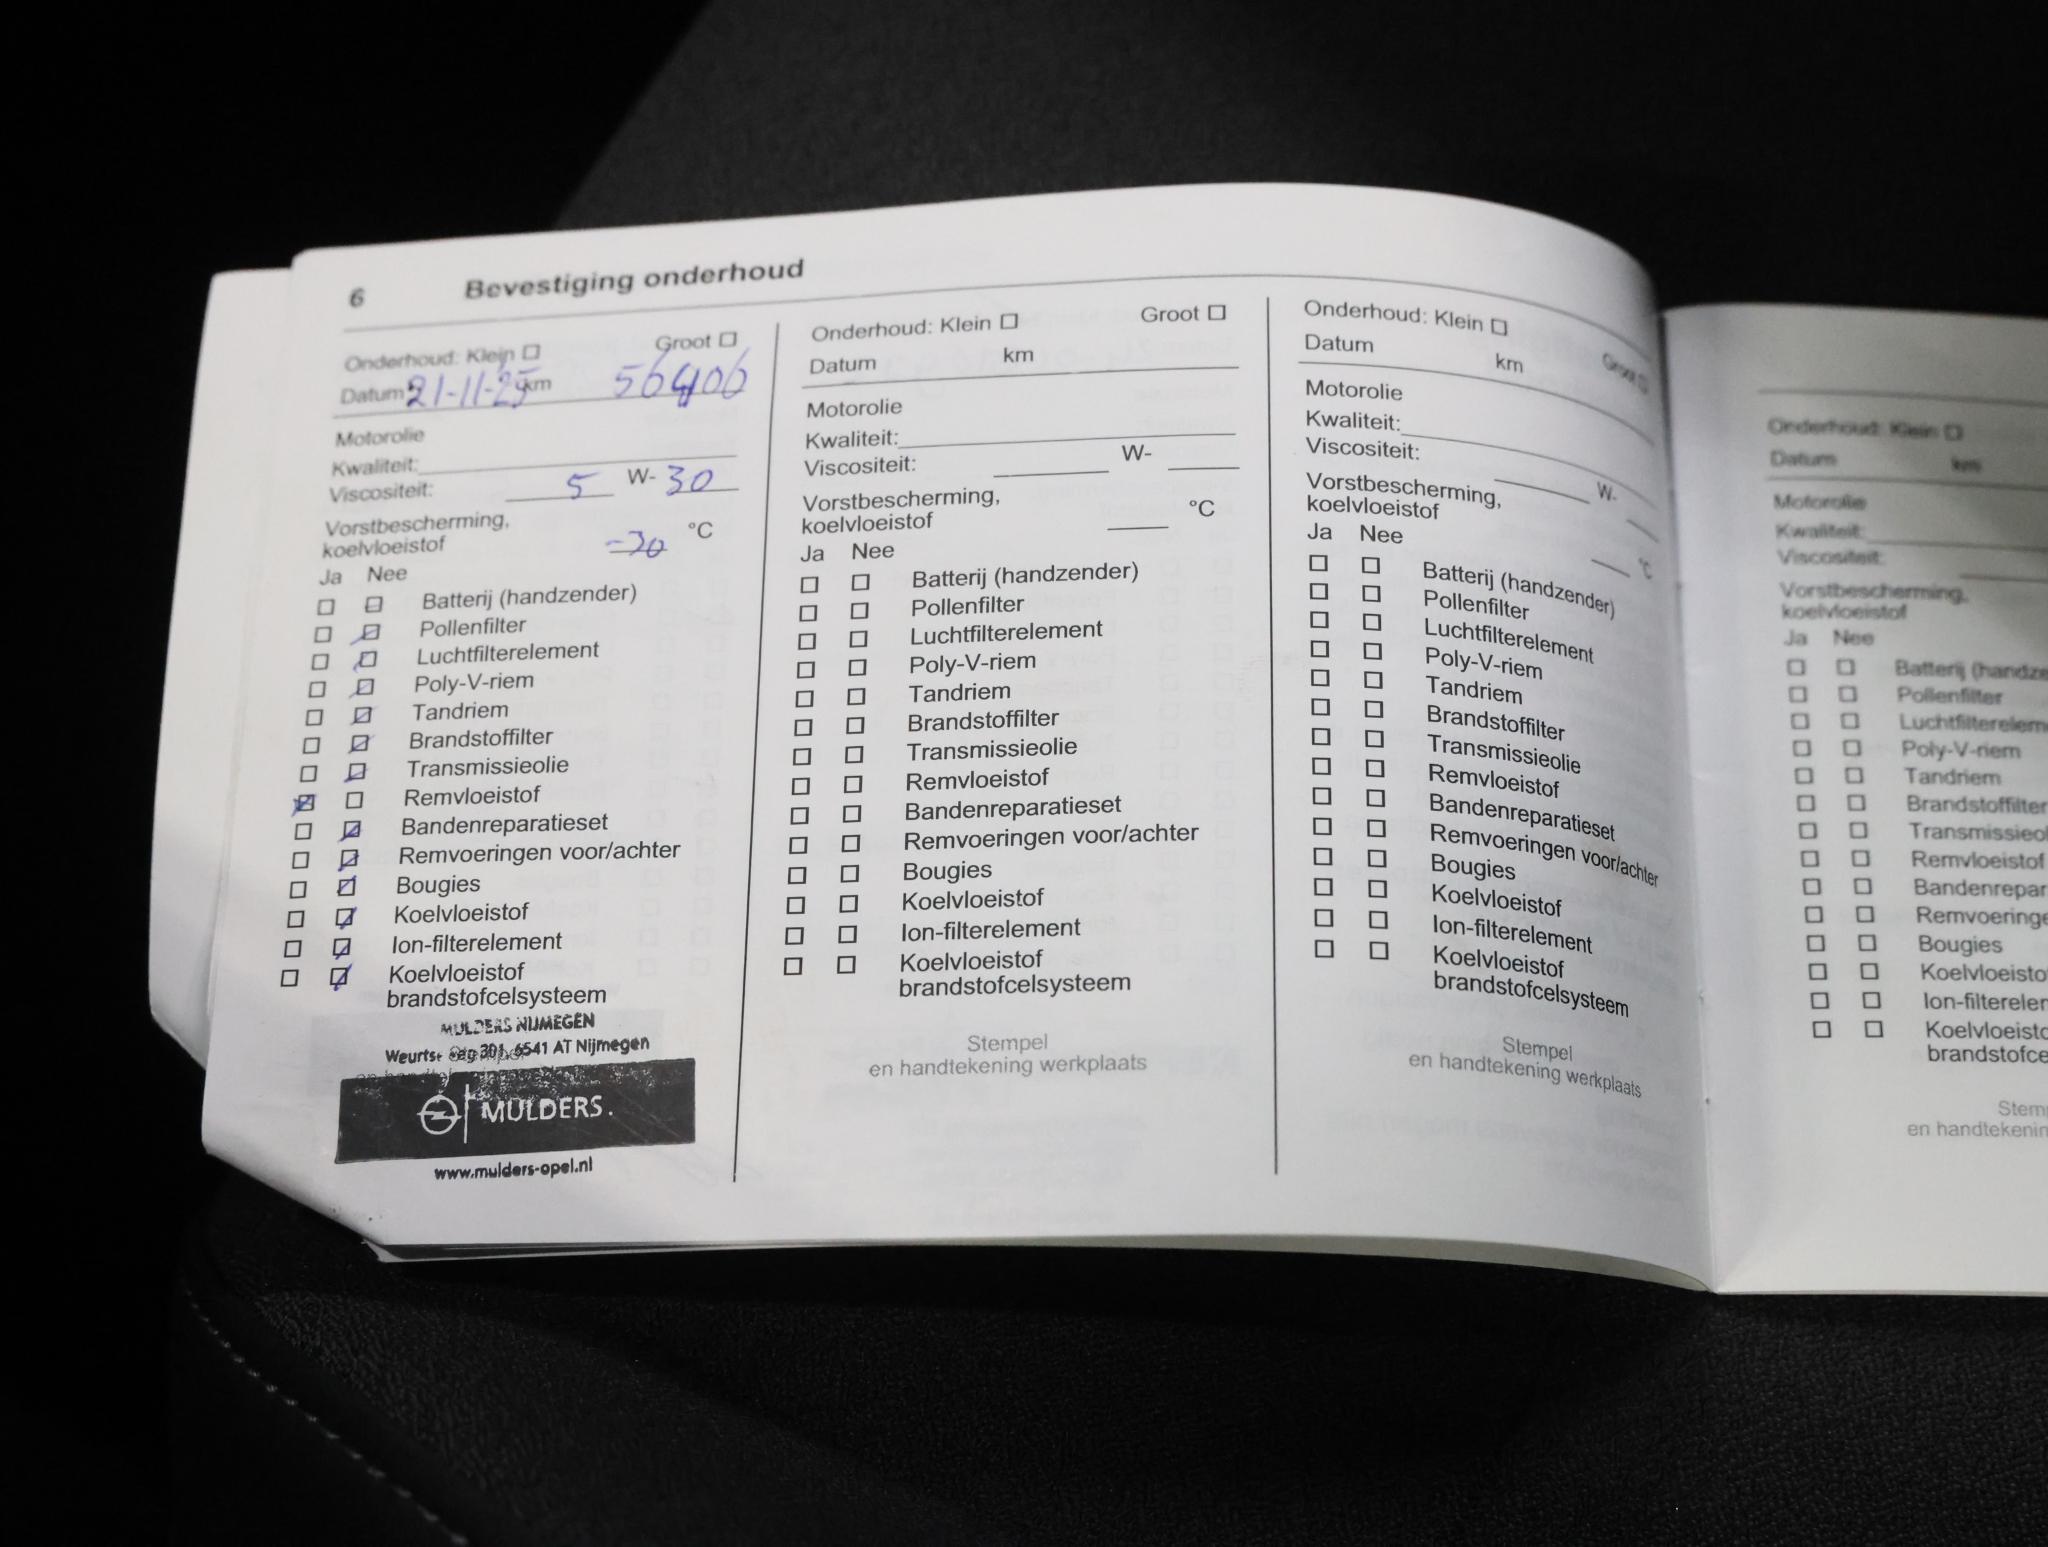 6 Bevestiging onderhoud
Onderhoud: Klein Groot
Datum 21-11-25 km 56406
Motorolie
Kwaliteit:
Viscositeit: 5 W- 30
Vorstbescherming,
koelvloeistof -30 °C
Ja Nee
Batterij (handzender)
Pollenfilter
Luchtfilterelement
Poly-V-riem
Tandriem
Brandstoffilter
Transmissieolie
Remvloeistof
Bandenreparatieset
Remvoeringen voor/achter
Bougies
Koelvloeistof
Ion-filterelement
Koelvloeistof
brandstofcelsysteem
MULDERS NIJMEGEN
301, 6541 AT Nijmegen
MULDERS.
www.mulders-opel.nl
Onderhoud: Klein Groot
Datum km
Motorolie
Kwaliteit:
Viscositeit: W-
Vorstbescherming,
koelvloeistof °C
Ja Nee
Batterij (handzender)
Pollenfilter
Luchtfilterelement
Poly-V-riem
Tandriem
Brandstoffilter
Transmissieolie
Remvloeistof
Bandenreparatieset
Remvoeringen voor/achter
Bougies
Koelvloeistof
Ion-filterelement
Koelvloeistof
brandstofcelsysteem
Stempel
en handtekening werkplaats
Onderhoud: Klein Groot
Datum km
Motorolie
Kwaliteit:
Viscositeit: W-
Vorstbescherming,
koelvloeistof °C
Ja Nee
Batterij (handzender)
Pollenfilter
Luchtfilterelement
Poly-V-riem
Tandriem
Brandstoffilter
Transmissieolie
Remvloeistof
Bandenreparatieset
Remvoeringen voor/achter
Bougies
Koelvloeistof
Ion-filterelement
Koelvloeistof
brandstofcelsysteem
Stempel
en handtekening werkplaats
Onderhoud: Klein
Datum km
Motorolie
Kwaliteit:
Viscositeit:
Vorstbescherming,
koelvloeistof
Ja Nee
Batterij (handze
Pollenfilter
Luchtfilterelem
Poly-V-riem
Tandriem
Brandstoffilter
Transmissieol
Remvloeistof
Bandenrepar
Remvoeringe
Bougies
Koelvloeisto
Ion-filterelen
Koelvloeisto
brandstofce
Stem
en handtekenin